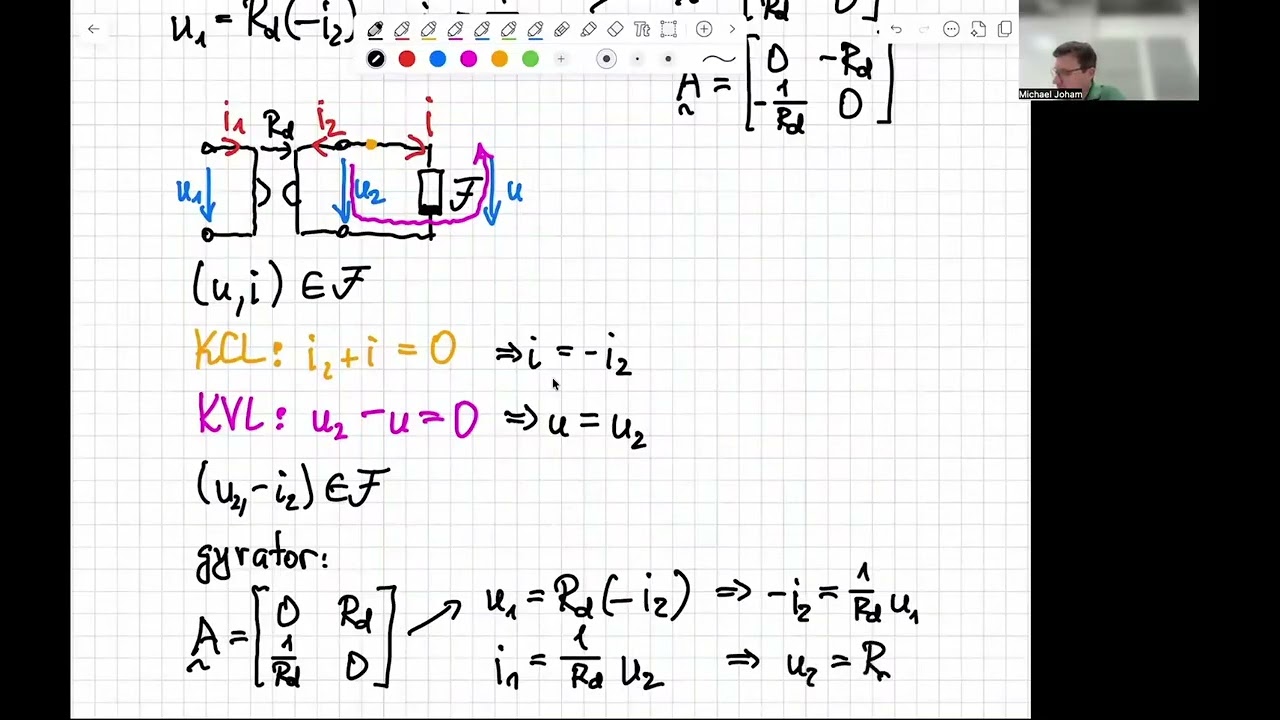 u₁ = R_d(-i₂)
R_d 0
A = [0 -R_d; -1/R_d 0]
Michael Joham
Tt
i₁ R_d i₂ i
u₁ u₂ ℱ u
(u,i) ∈ ℱ
KCL: i₂ + i = 0 ⇒ i = -i₂
KVL: u₂ - u = 0 ⇒ u = u₂
(u₂, -i₂) ∈ ℱ
gyrator:
A = [0 R_d; 1/R_d 0] u₁ = R_d(-i₂) ⇒ -i₂ = 1/R_d u₁
i₁ = 1/R_d u₂ ⇒ u₂ = R